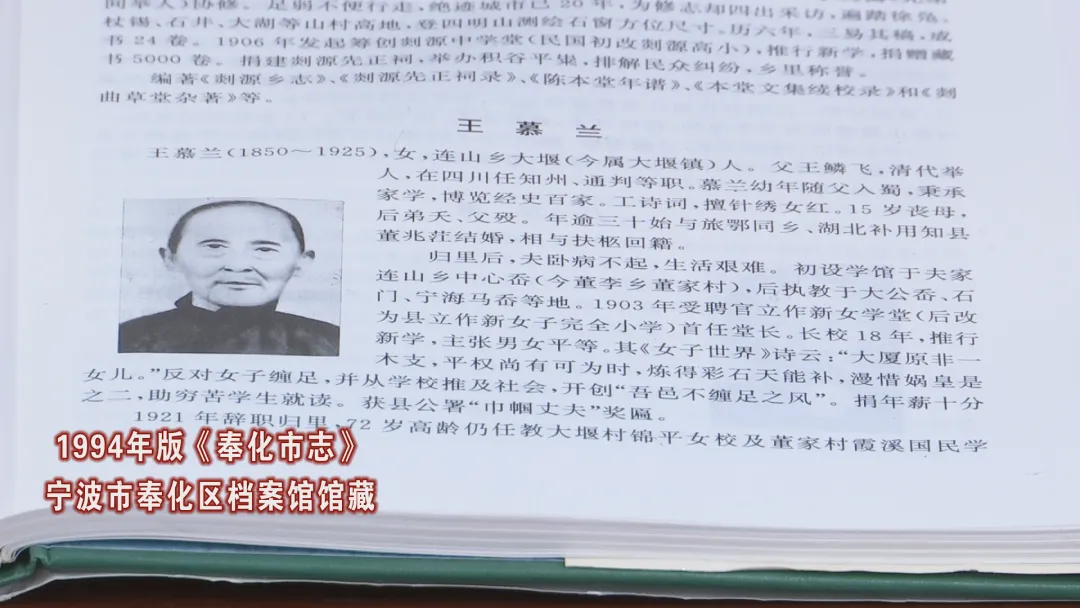 同举人》协修。足弱不便行走,绝迹城市已20年,为修志却四出采访,遍踏徐凫、
杖锡、石井、大湖等山村高地,登四明山测绘石窗方位尺寸。历六年,三易其稿,成
书24卷。1906年发起筹创剡源中学堂(民国初改剡源高小),推行新学,捐赠藏
书5000卷。捐建剡源先正祠,举办积谷平粜,排解民众纠纷,乡里称誉。
编著《剡源乡志》、《剡源先正祠录》、《陈本堂年谱》、《本堂文集续校录》和《剡
曲草堂杂著》等。
王慕兰
王慕兰(1850～1925),女,连山乡大堰(今属大堰镇)人。父王鳞飞,清代举
人,在四川任知州、通判等职。慕兰幼年随父入蜀,秉承
家学,博览经史百家。工诗词,擅针绣女红。15岁丧母,
后弟夭、父殁。年逾三十始与旅鄂同乡、湖北补用知县
董兆荭结婚,相与扶柩回籍。
归里后,夫卧病不起,生活艰难。初设学馆于夫家
连山乡中心岙(今董李乡董家村),后执教于大公岙、石
门、宁海马岙等地。1903年受聘官立作新女学堂(后改
为县立作新女子完全小学)首任堂长。长校18年,推行
新学,主张男女平等。其《女子世界》诗云:“大厦原非一
木支,平权尚有可为时,炼得彩石天能补,漫惜娲皇是
女儿。”反对女子缠足,并从学校推及社会,开创“吾邑不缠足之风”。捐年薪十分
之二,助穷苦学生就读。获县公署“巾帼丈夫”奖匾。
1921年辞职归里,72岁高龄仍任教大堰村锦平女校及董家村霞溪国民学
1994年版《奉化市志》
宁波市奉化区档案馆馆藏